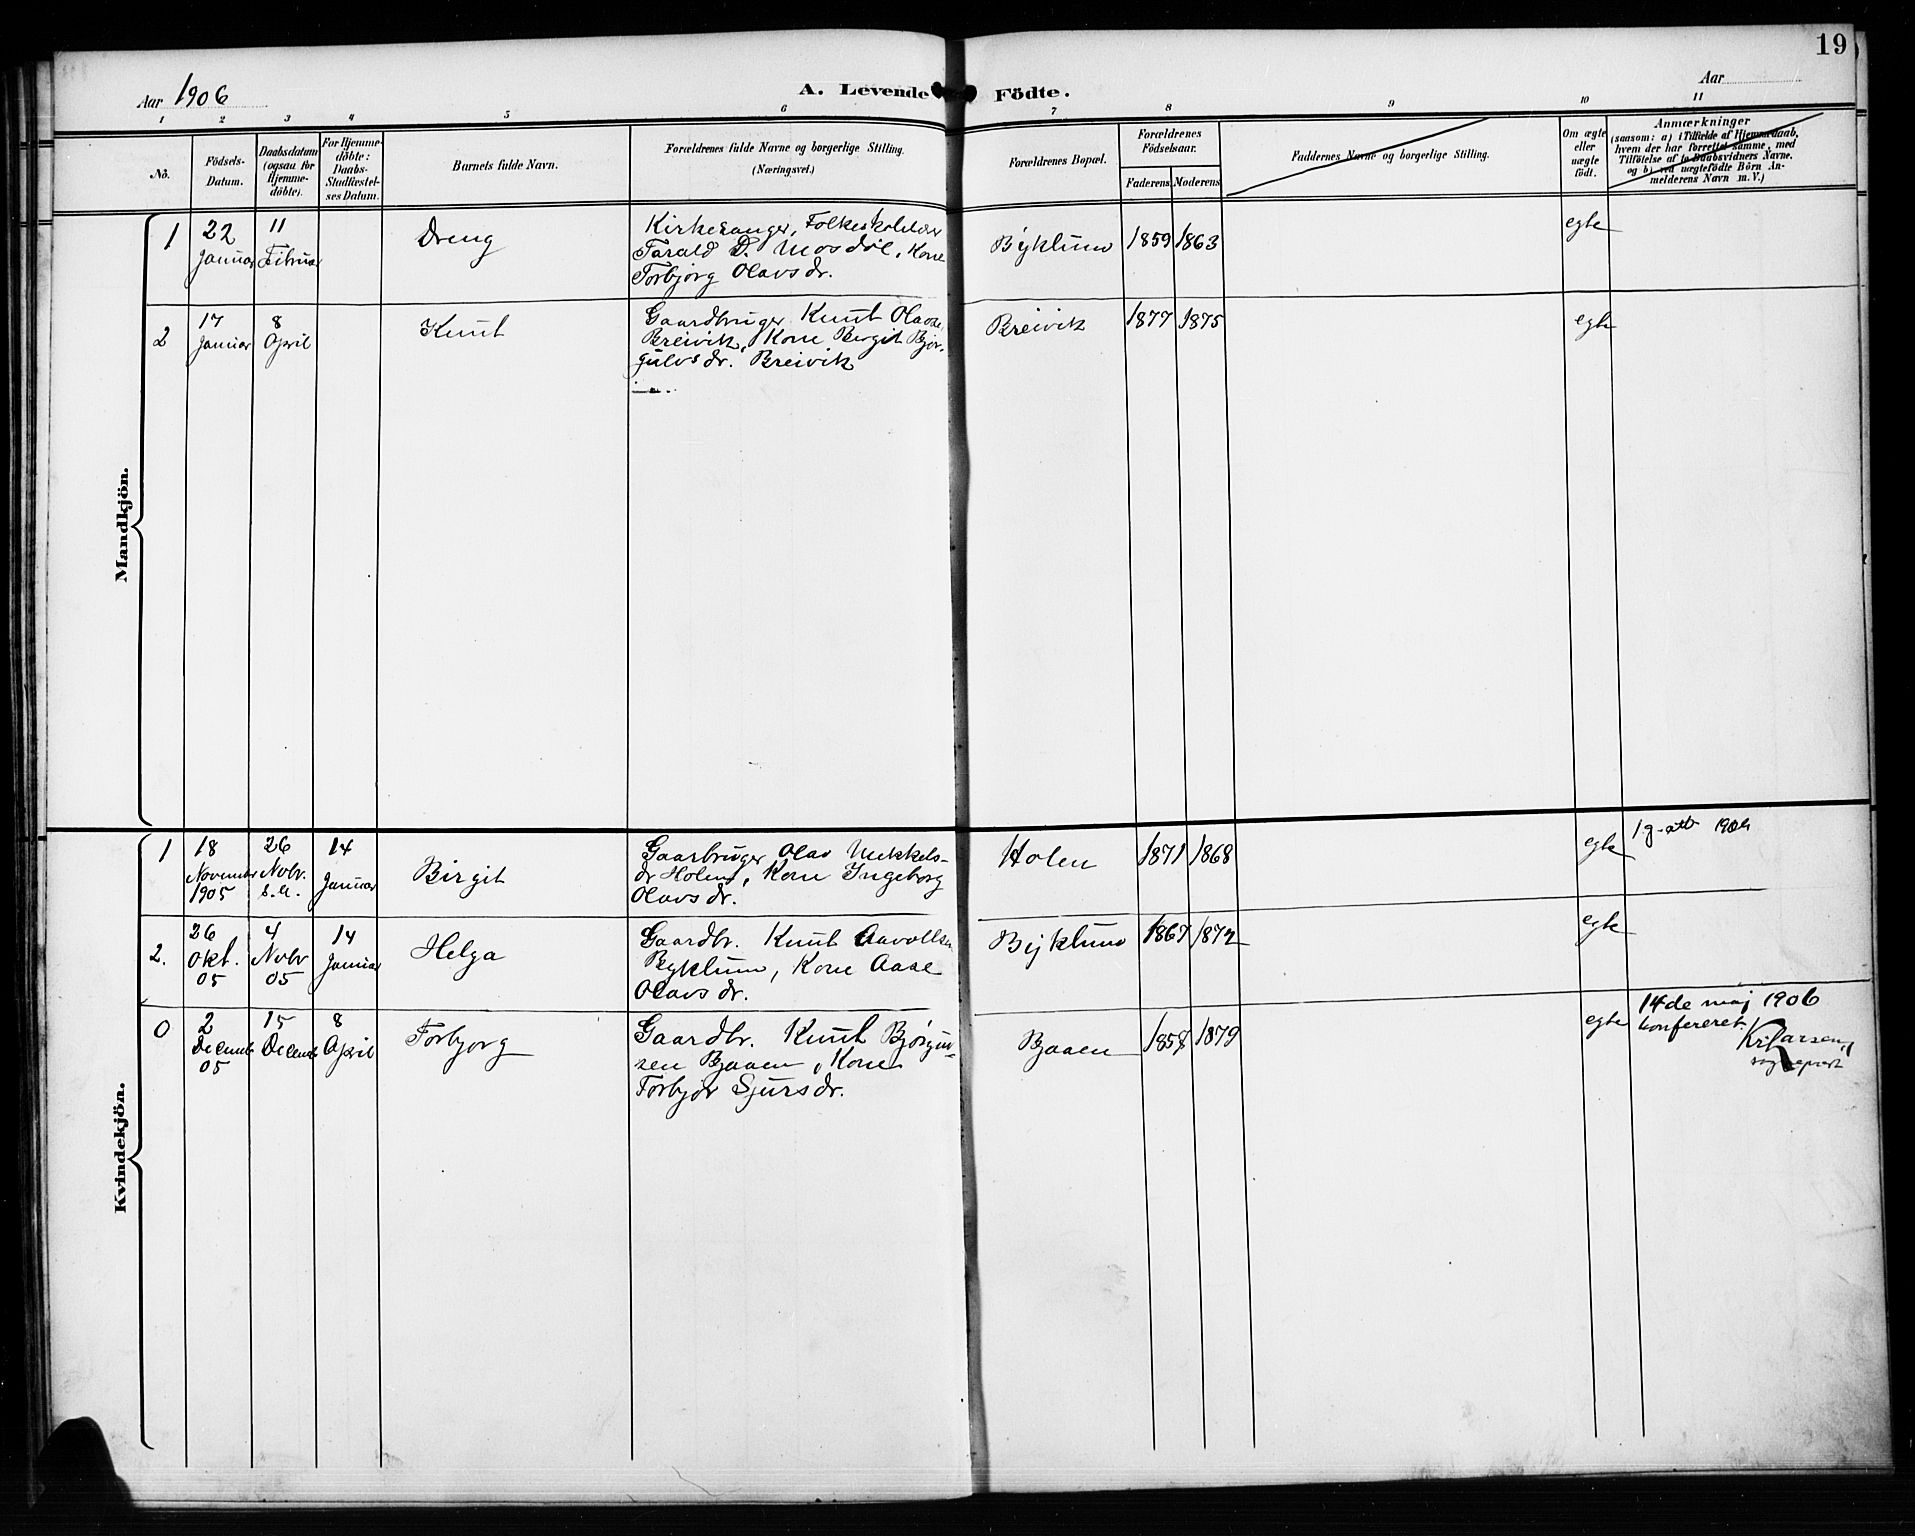 19
Aar 1906
A. Levende Födte.
Aar
1 2 3 4 5 6 7 8 9 10 11
No.
Födsels-
Datum.
Daabsdatum
(ogsaa for
Hjemme-
döbte).
For Hjemme-
döbte:
Daabs-
Stadfæstel-
ses Datum.
Barnets fulde Navn.
Forældrenes fulde Navne og borgerlige Stilling.
(Næringsvei.)
Forældrenes Bopæl.
Forældrenes
Födselsaar.
Faderens Moderens
Faddernes Navne og borgerlige Stilling.
Om ægte
eller
uægte
född.
Anmærkninger
(saasom: a) i Tilfælde af Hjemmedaab,
hvem der har forrettet samme, med
Tilföielse af to Daabsvidners Navne.
og b) ved uægtefödte Börn An-
melderens Navn m. V.)
Mandkjön.
1
22
Januar
11
Februar
Dreng
Kirkesanger, Folkeskolelærer
Tarald D. Mosdøl, Kone
Torbjørg Olavs dr.
Byklum
1859 1863
egte
2
17
Januar
8
April
Knut
Gaardbruger Knut Olavse
Breivik, Kone Birgit Bjør-
gulvs dr. Breivik
Breivik
1877 1875
egte
Kvindekjön.
1
18
November
1905
26
Novbr.
s. a.
14
Januar
Birgit
Gaarbruger Olav Mekkels-
dr Holen, Kone Ingeborg
Olavs dr.
Holen
1871 1868
egte
1 g-att 1904
2.
26
Okt.
05
4
Nvbr
05
14
Januar
Helga
Gaardbr. Knut Aavolsen
Byklum, Kone Aase
Olavs dr.
Byklum
1867 1872
egte
0
2
Decemb
05
15
Decemb
8
April
Torbjorg
Gaardbr. Knut Bjørgu-
sen Bjaaen, Kone
Torbjør Sjursdr.
Bjaaen
1857 1879
egte
14de maj 1906
konfereret
Kr. Larsen,
sogneprest